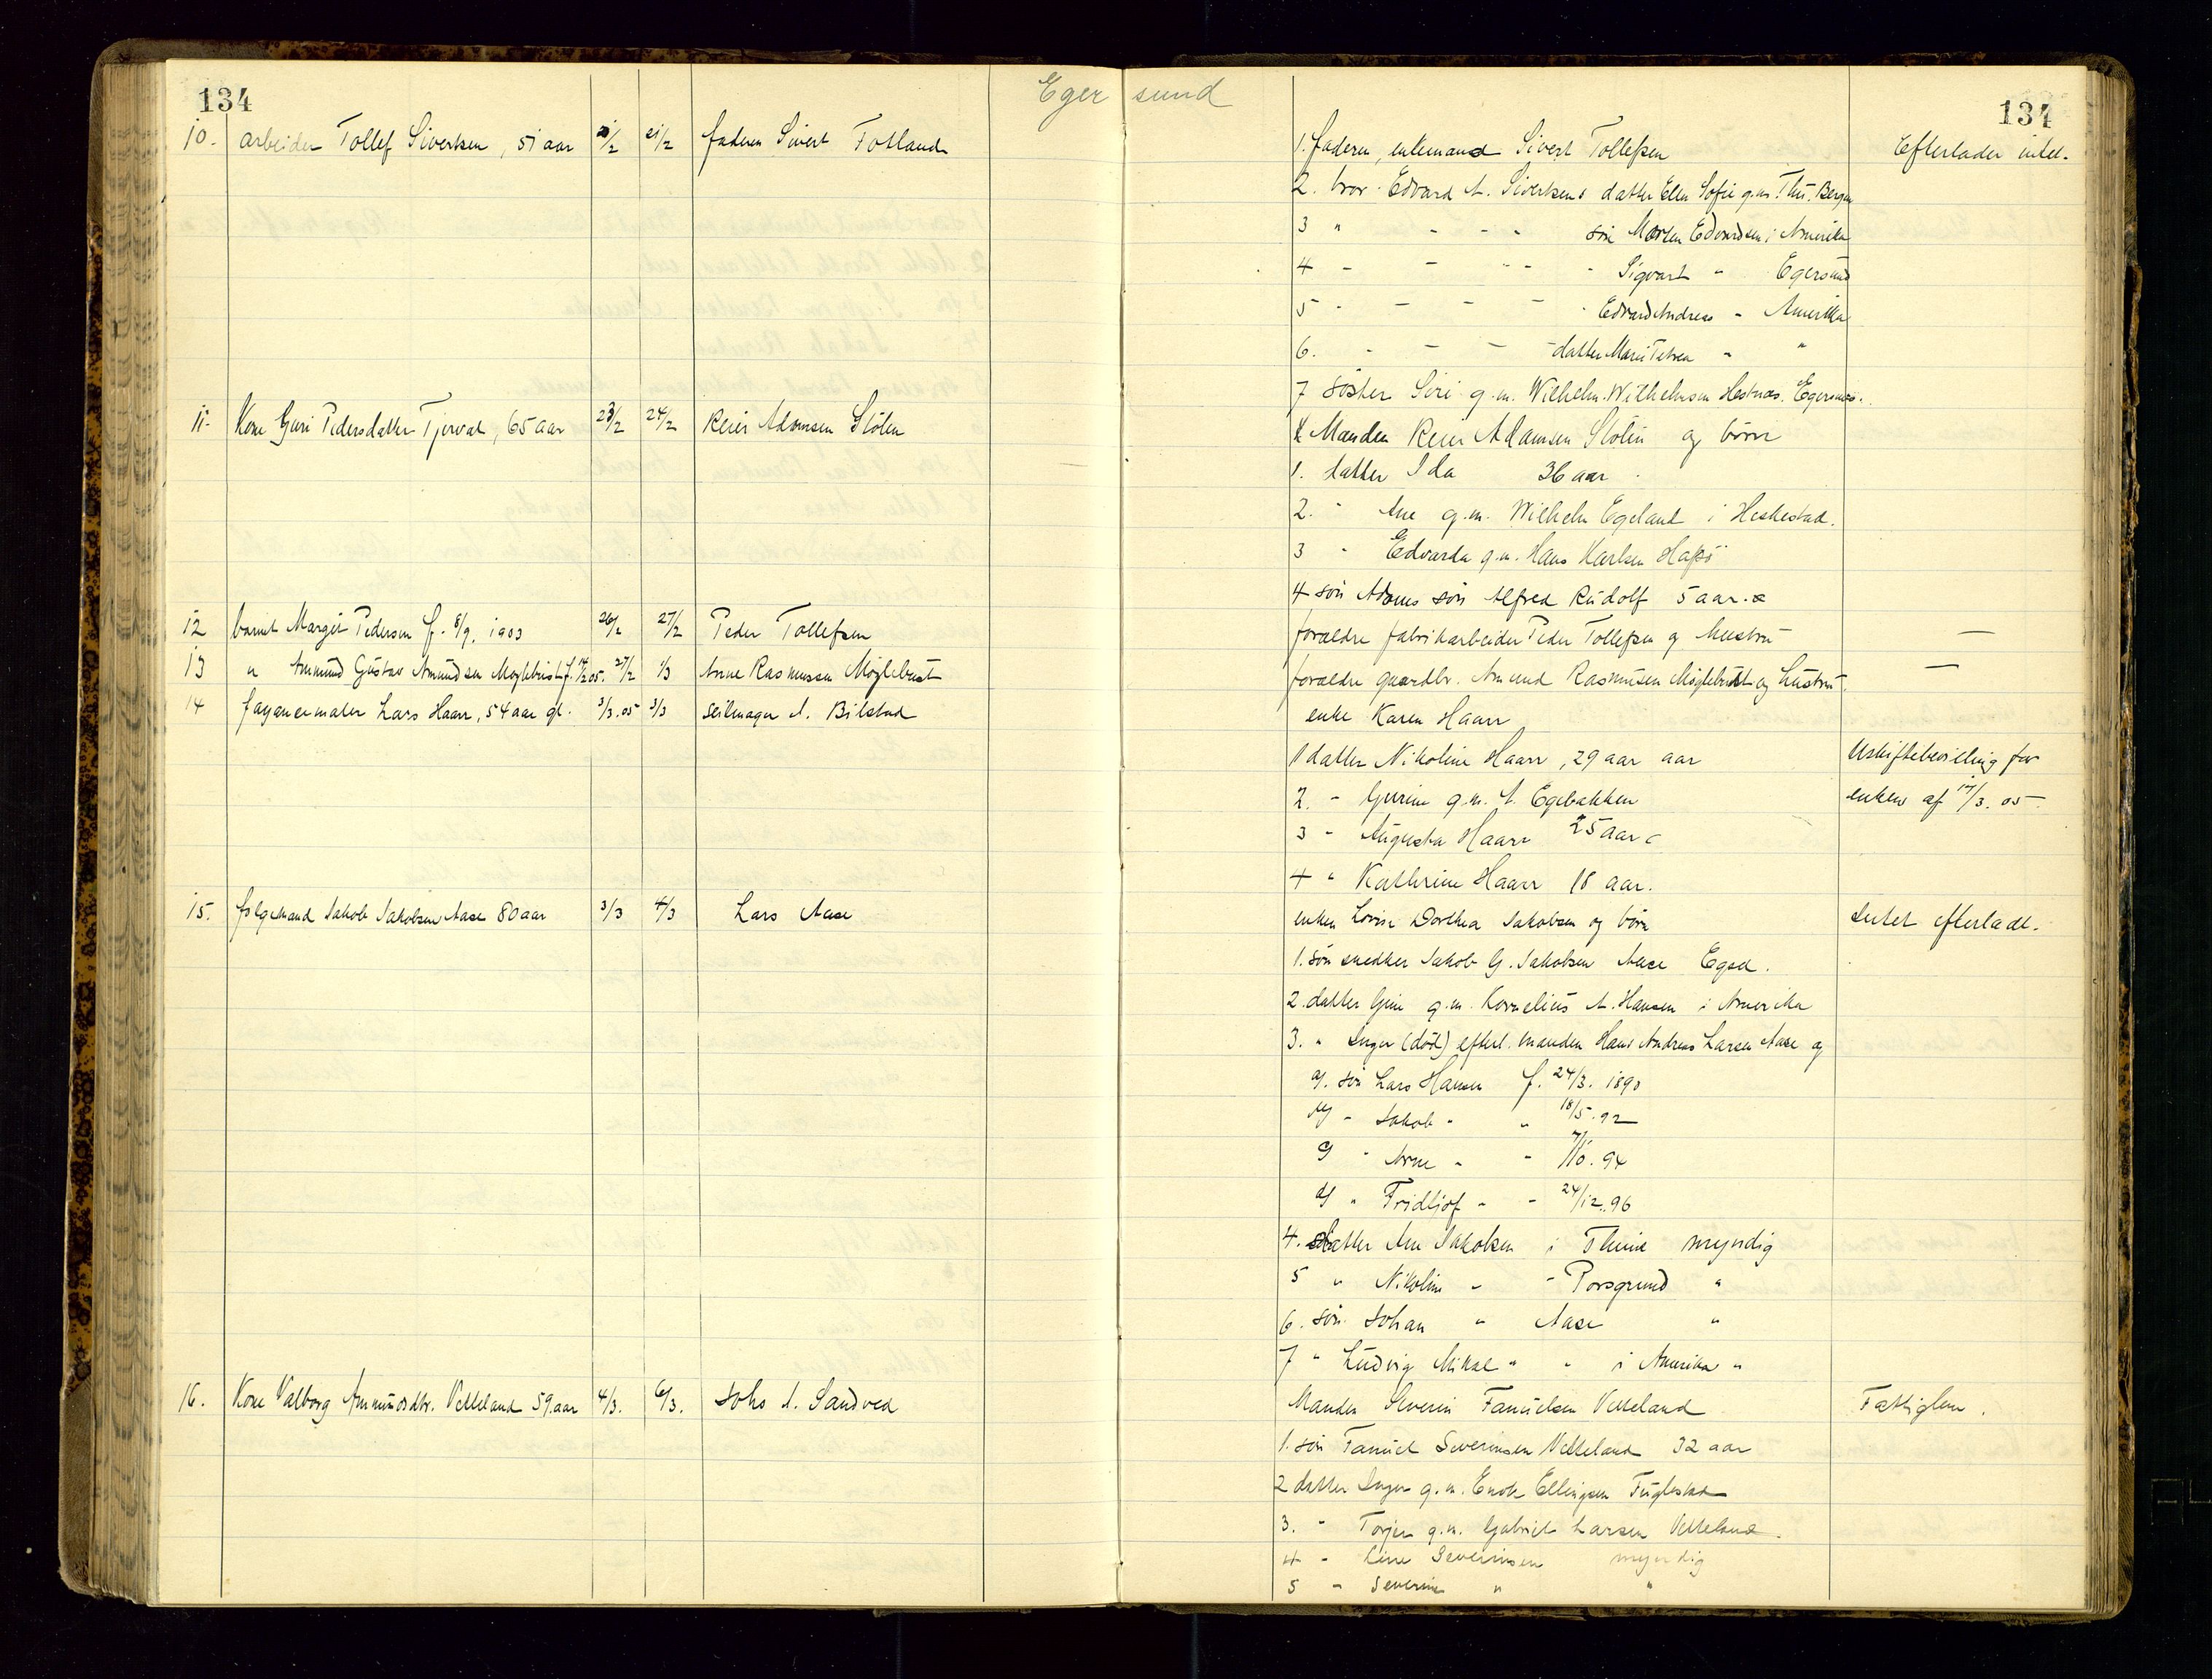 134
Egersund
134
10. arbeider Tollef Sivertsen, 51 aar 21/2 21/2 faderen Sivert Fotland
1. Faderen, enkemand Sivert Tollefsen Efterlader intet.
2. bror Edvard A. Sivertsens datter Ellen Sofie g.m. Ths. Bergen
3 " - - - søn Morten Edvardsen i Amerika
4 - - - - - Sigvart - Egersund
5 - - - - - Edvard Andreas - Amerika
6. - - - - datter Marie Petrea - "
7 søster Siri g.m. Wilhelm Wilhelmsen Hestnes. Egersund.
11. Kone Guri Pedersdatter Tjerval, 65 aar 23/2 24/2 Reier Adamsen Stölen
Manden Reier Adamsen Stölen og börn
1. datter Ida 36 aar
2. - Ane g.m. Wilhelm Egeland i Heskestad.
3 - Edvarda g.m. Hans Karlsen Hafsö
4 søn Adams søn Alfred Rudolf 5 aar.
12 barnet Margit Pedersen f. 8/9. 1903 26/2 27/2 Peder Tollefsen
foraldre fabrikarbeider Peder Tollefsen og hustru —
13 " Ammund Gustav Amundsen Møglebust f. 14/2 05. 27/2 1/3 Arne Rasmussen Møglebust
foraldre gaardbr. Amund Rasmusen Møglebust og hustru. —
14 fayancemaler Lars Haarr, 54 aar gl. 3/3.05 3/3 Seilmager A. Bilstad
enke Karen Haarr
1 datter Nikoline Haarr, 29 aar aar Uskiftebevilling for
2. - Gurine g.m. A. Egebakken enken af 17/3. 05.
3 - Augusta Haarr 25 aar
4 " Kathrine Haarr 18 aar.
15. folgemand Jakob Jakobsen Aase 80 aar 3/3 4/3 Lars Aase
enken Lovise Dorthea Jakobsen og börn Intet efterladt.
1. søn snedker Jakob G. Jakobsen Aase Egsd.
2. datter Gine g.m. Kornelius A. Hansen i Amerika
3. " Inger (död) efterl. manden Hans Andreas Larsen Aase og
a). søn Lars Hansen f. 24/3. 1890
b) - Jakob - " 18/5. 92
c) - Arne - - 7/10. 94
d) " Fridtjof - - 24/12. 96
4. datter Ane Jakobsen i Thime myndig
5 " Nikoline - - Porsgrund "
6. søn Johan " Aase "
7 " Ludvig Mikal " - i Amerika "
16. Kone Valborg Ammundsdtr. Vetteland 59 aar 4/3. 6/3. Johs A. Sandved
Manden Severin Tanielsen Vetteland Fattiglem.
1. søn Taniel Severinsen Vetteland 32 aar
2 datter Inger g.m. Enok Ellingsen Fuglestad
3. - Torjer g.m. Gabriel Larsen Vetteland.
4 - Line Severinsen myndig
5 - Severine " "